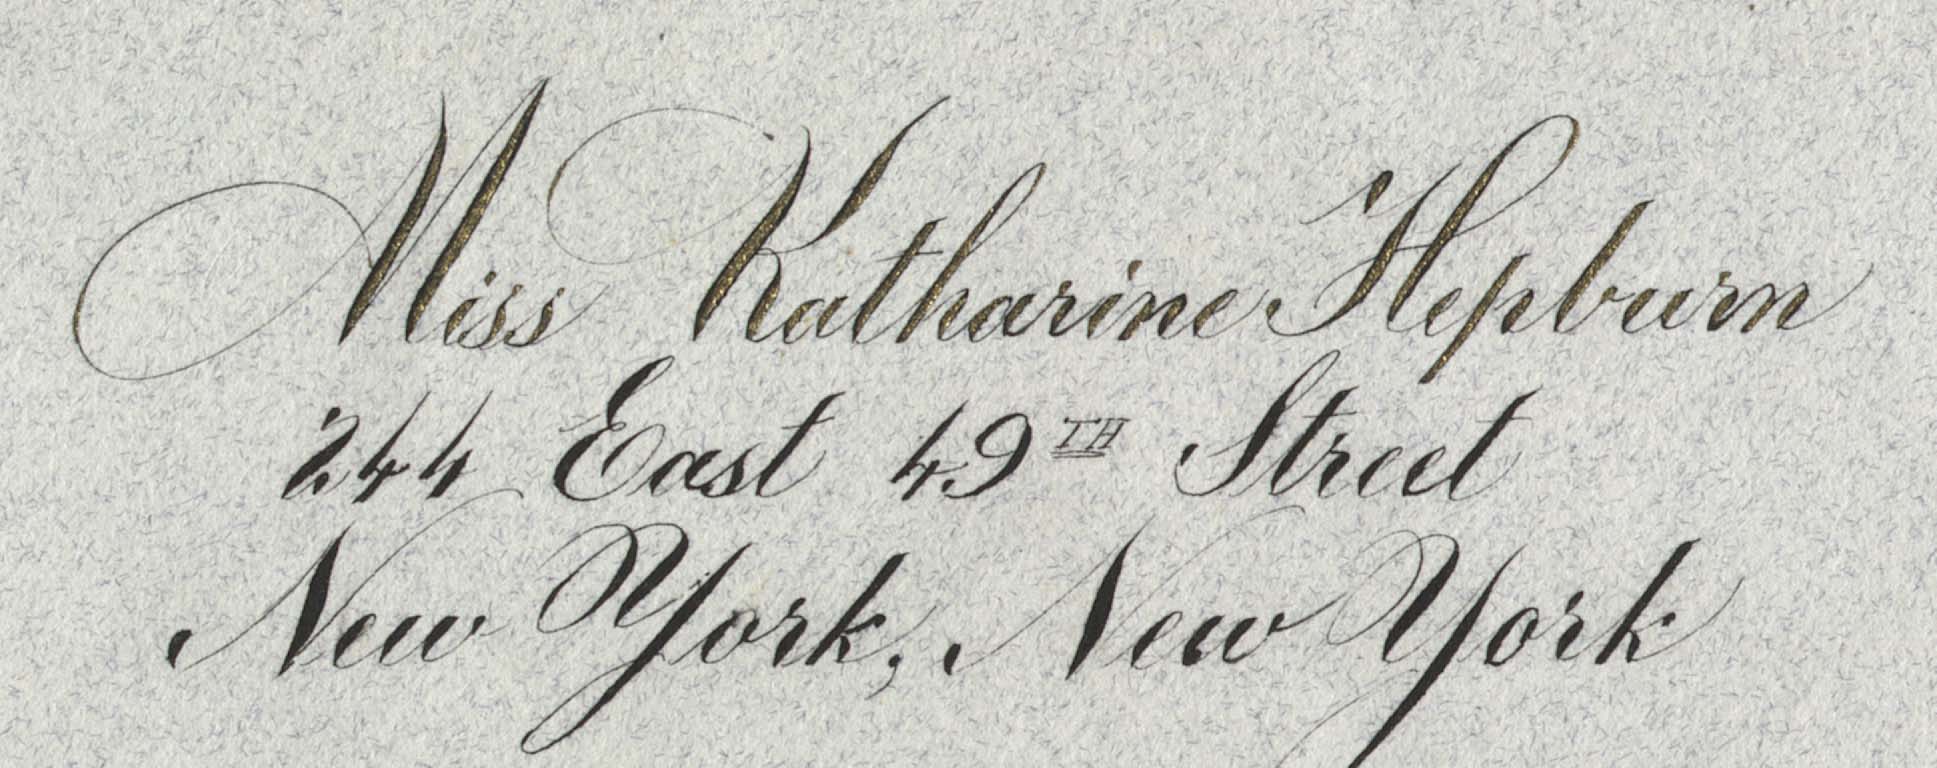 Miss Katharine Hepburn
244 East 49TH Street
New York, New York